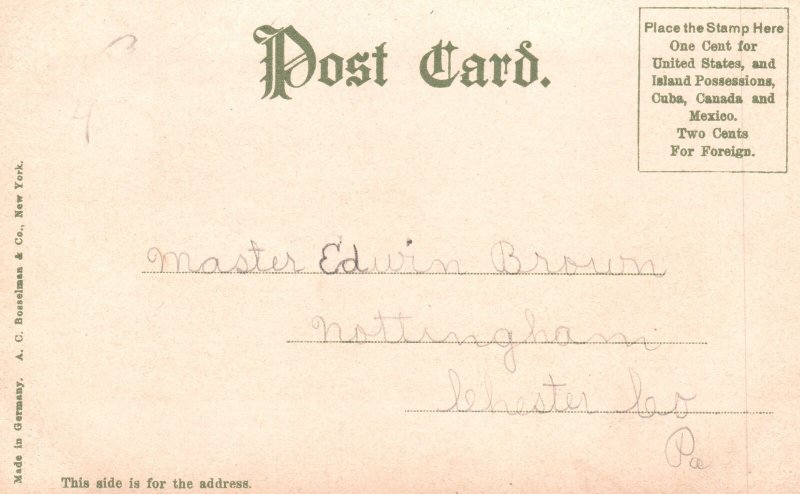 Post Card.
Place the Stamp Here
One Cent for
United States, and
Island Possessions,
Cuba, Canada and
Mexico.
Two Cents
For Foreign.
Master Edwin Brown
Nottingham
Chester Co
Pa
This side is for the address.
Made in Germany. A. C. Bosselman & Co., New York.